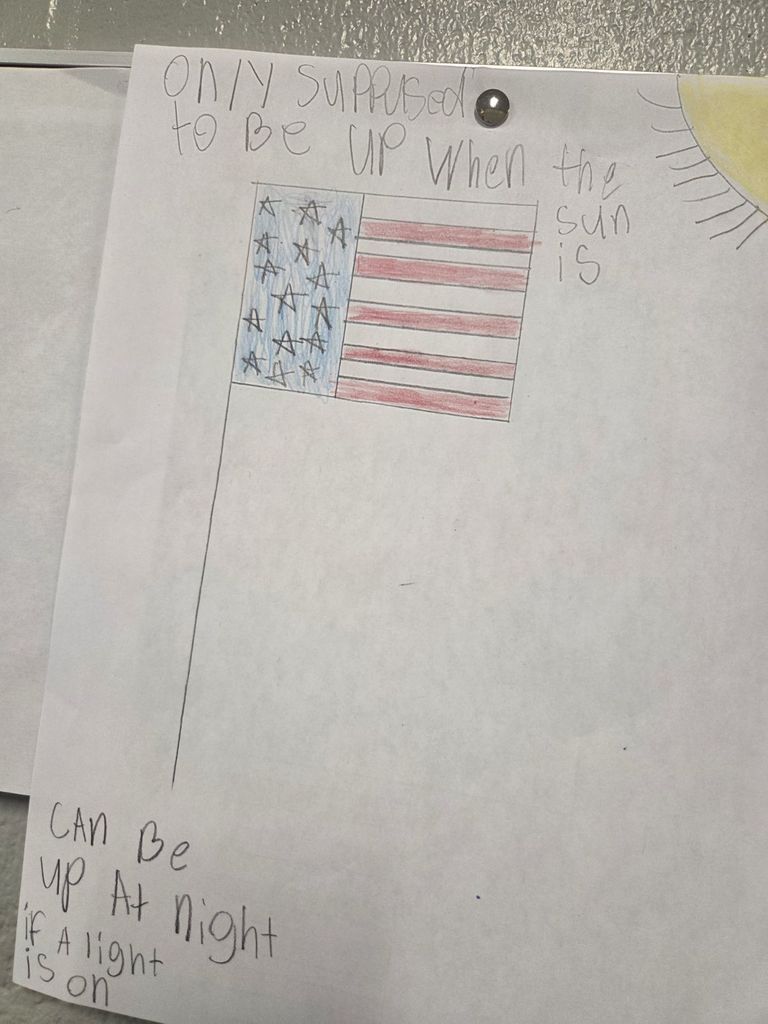 Only suppused
to Be up when the
sun
is
CAn Be
up At night
if A light
is on